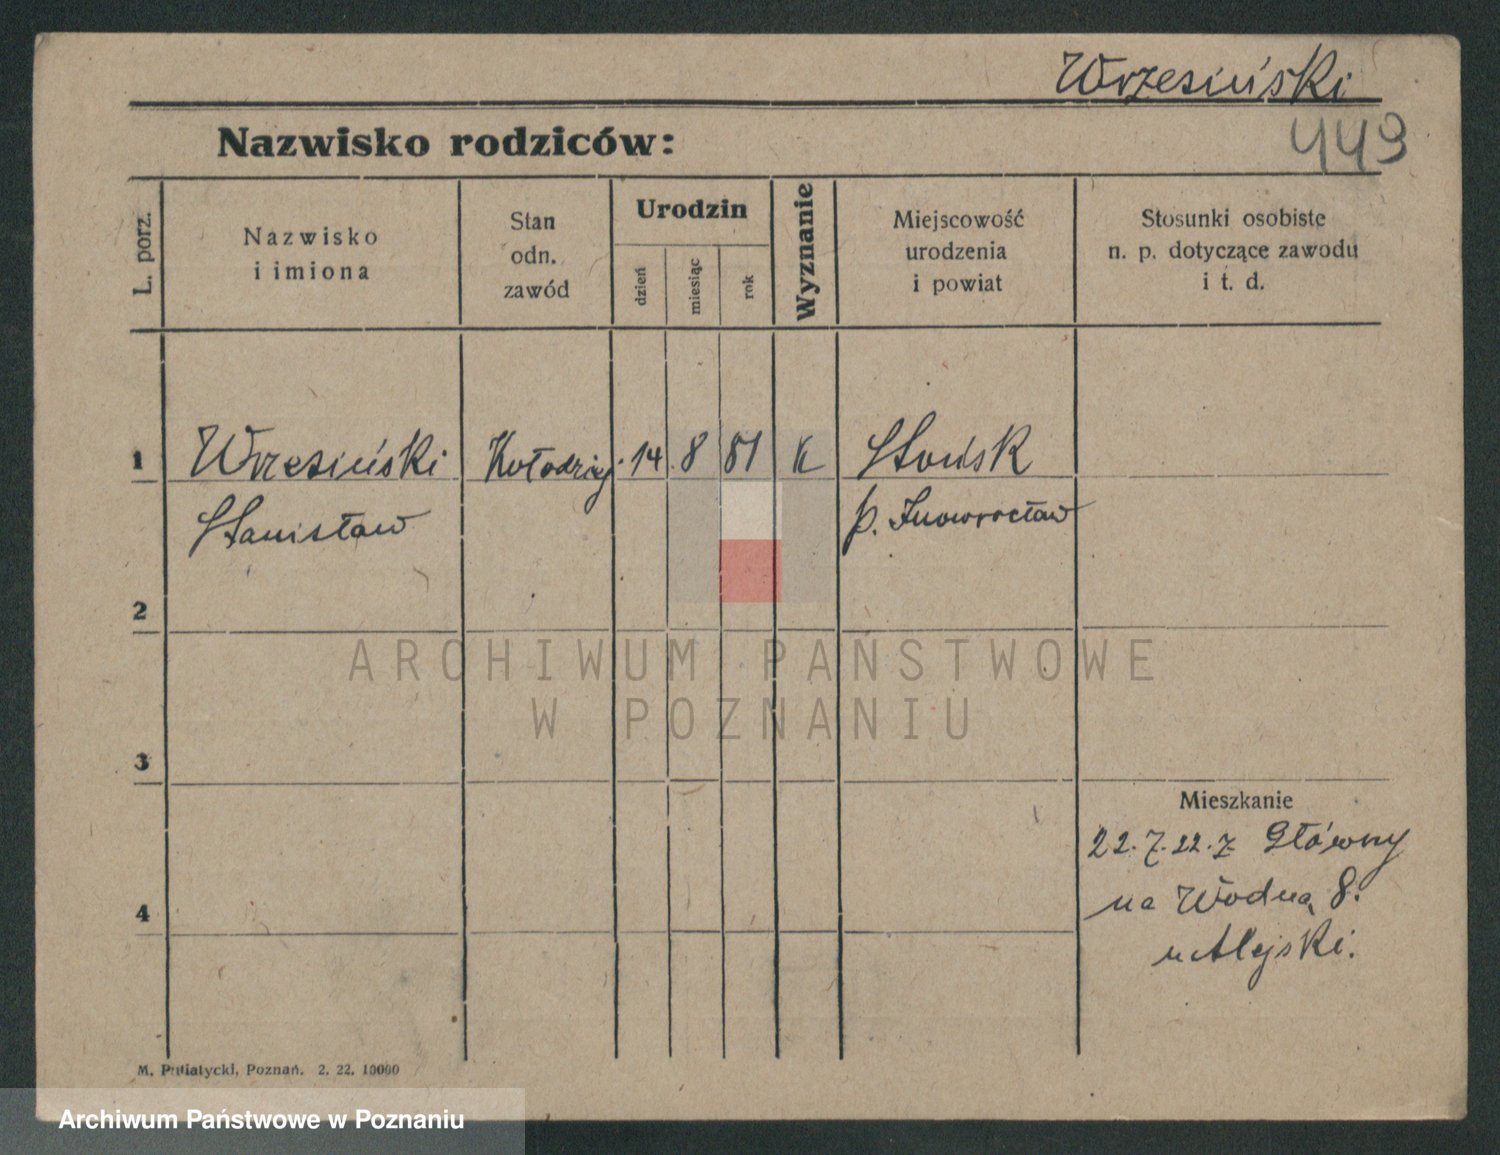 Wrzesiński
Nazwisko rodziców:
449
L. porz.
Nazwisko
i imiona
Stan
odn.
zawód
Urodzin
dzień
miesiąc
rok
Wyznanie
Miejscowość
urodzenia
i powiat
Stosunki osobiste
n. p. dotyczące zawodu
i t. d.
1
Wrzesiński
Kołodziej
14
8
81
K
Stanisław
p. Inowrocław
2
ARCHIWUM PAŃSTWOWE
W POZNANIU
3
Mieszkanie
22.7.22. z Główny
na Wodną 8.
4
u Alejski.
M. Putiatycki, Poznań. 2. 22. 10000
Archiwum Państwowe w Poznaniu